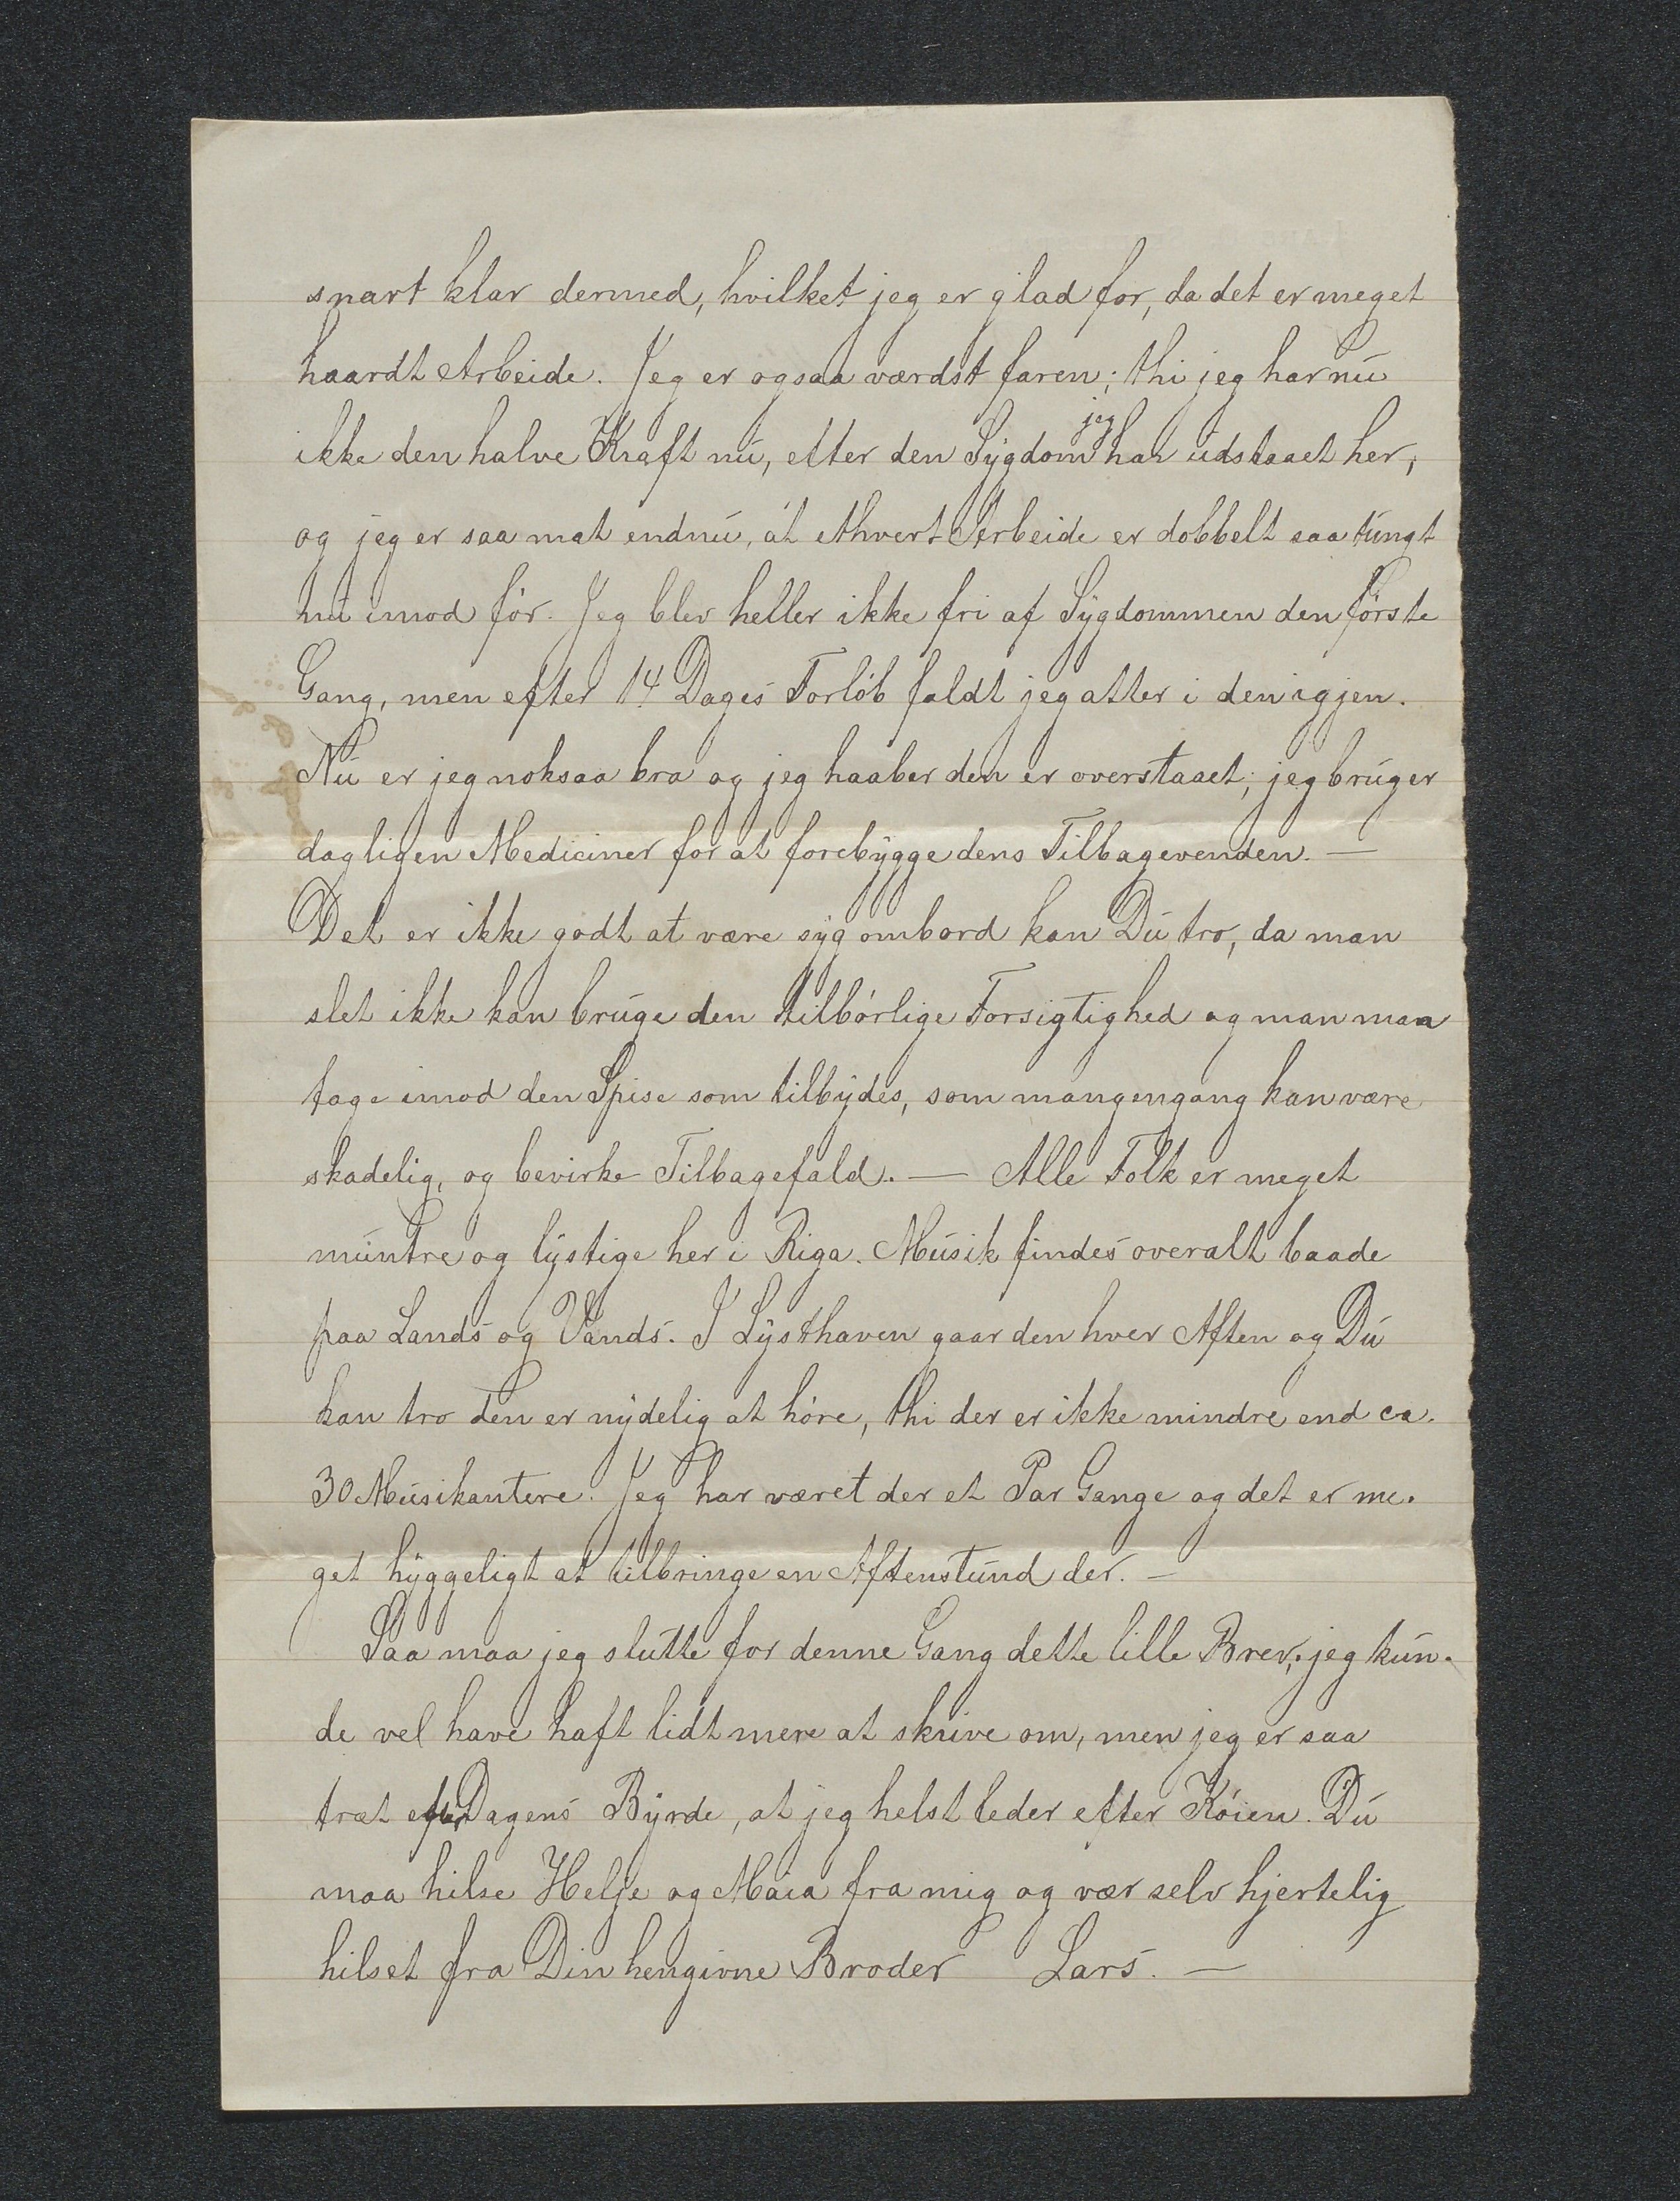 snart klar dermed, hvilket jeg er glad for, da det er meget
haardt Arbeide. Jeg er ogsaa værdst faren; thi jeg har nu
ikke den halve Kraft nu, efter den Sygdom jeg har udstaaet her,
og jeg er saa mat endnu, at ethvert Arbeide er dobbelt saa tungt
nu imod før. Jeg blev heller ikke fri af Sygdommen den første
Gang, men efter 14 Dages Forløb faldt jeg atter i den igjen.
Nu er jeg noksaa bra og jeg haaber den er overstaaet; jeg bruger
dagligen Mediciner for at forebygge dens Tilbagevenden. —
Det er ikke godt at være syg ombord kan Du tro, da man
slet ikke kan bruge den tilbørlige Forsigtighed og man maa
tage imod den Spise som tilbydes, som mangengang kan være
skadelig, og bevirke Tilbagefald. — Alle Folk er meget
muntre og lystige her i Riga. Musik findes overalt baade
paa Lands og Vands. I Lysthaven gaar den hver Aften og Du
kan tro den er nydelig at høre, thi der er ikke mindre end ca.
30 Musikantere. Jeg har været der et Par Gange og det er me-
get hyggeligt at tilbringe en Aftenstund der. —
Saa maa jeg slutte for denne Gang dette lille Brev; jeg kun-
de vel have haft lidt mere at skrive om, men jeg er saa
træt efter Dagens Byrde, at jeg helst leder efter Køien. Du
maa hilse Helje og Maia fra mig og vær selv hjertelig
hilset fra Din hengivne Broder Lars. —